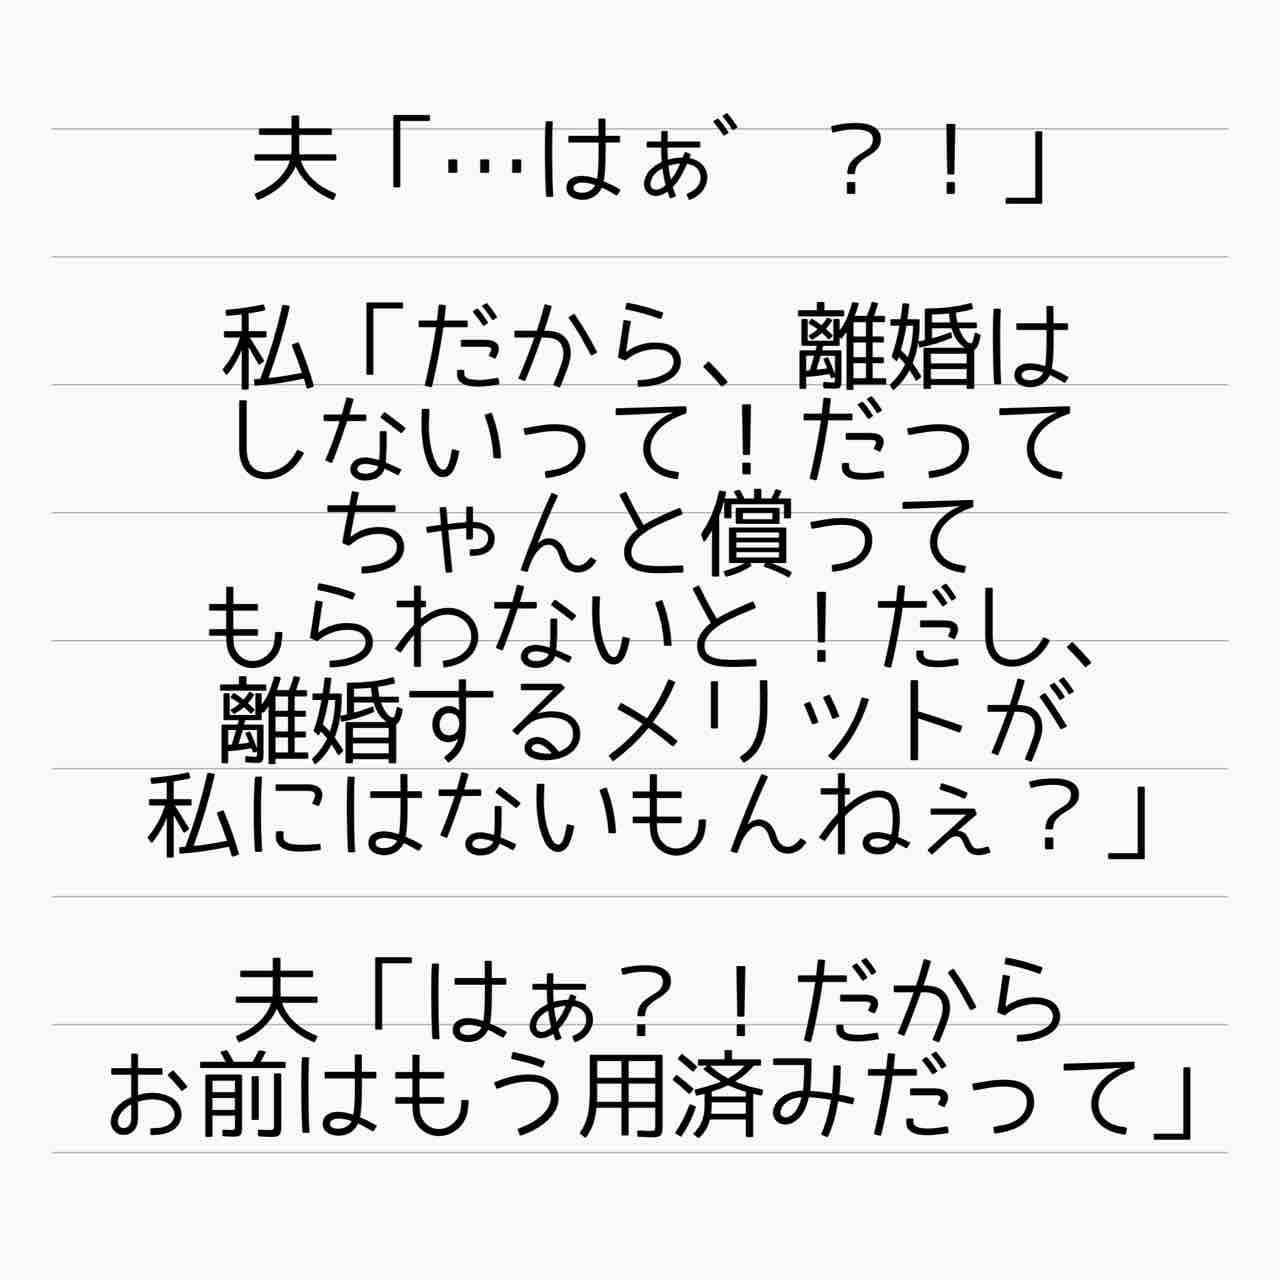 夫「…はぁ゛　？！」
私「だから、離婚は
しないって！だって
ちゃんと償って
もらわないと！だし、
離婚するメリットが
私にはないもんねぇ？」
夫「はぁ？！だから
お前はもう用済みだって」